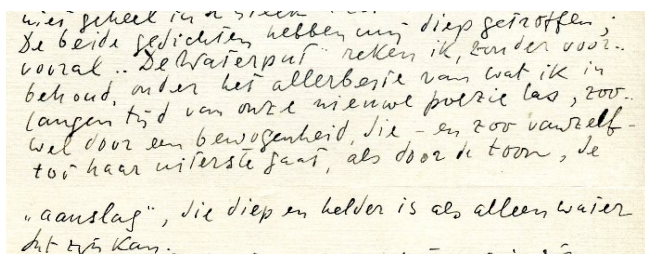 niet geheel in
De beide gedichten hebben mij diep getroffen;
vooral „De Waterput" reken ik, zonder voor-
behoud, onder het allerbeste van wat ik in
langen tijd van onze nieuwe poëzie las, zoo-
wel door een bewogenheid, die – en zoo vanzelf –
tot haar uiterste gaat, als door de toon, de
„aanslag", die diep en helder is als alleen water
dat zijn kan.